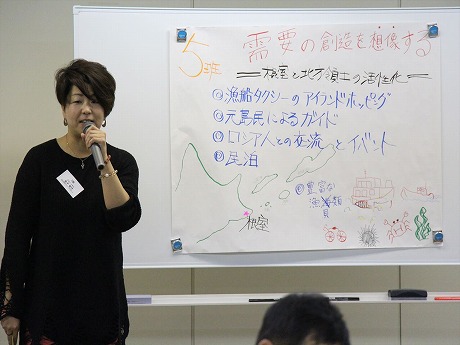 5班
需要の創造を想像する
根室と北方領土の活性化
①漁船タクシーのアイランドホッピング
②元島民によるガイド
③ロシア人との交流とイベント
④民泊
⑤豊富な
漁
類
貝
根室